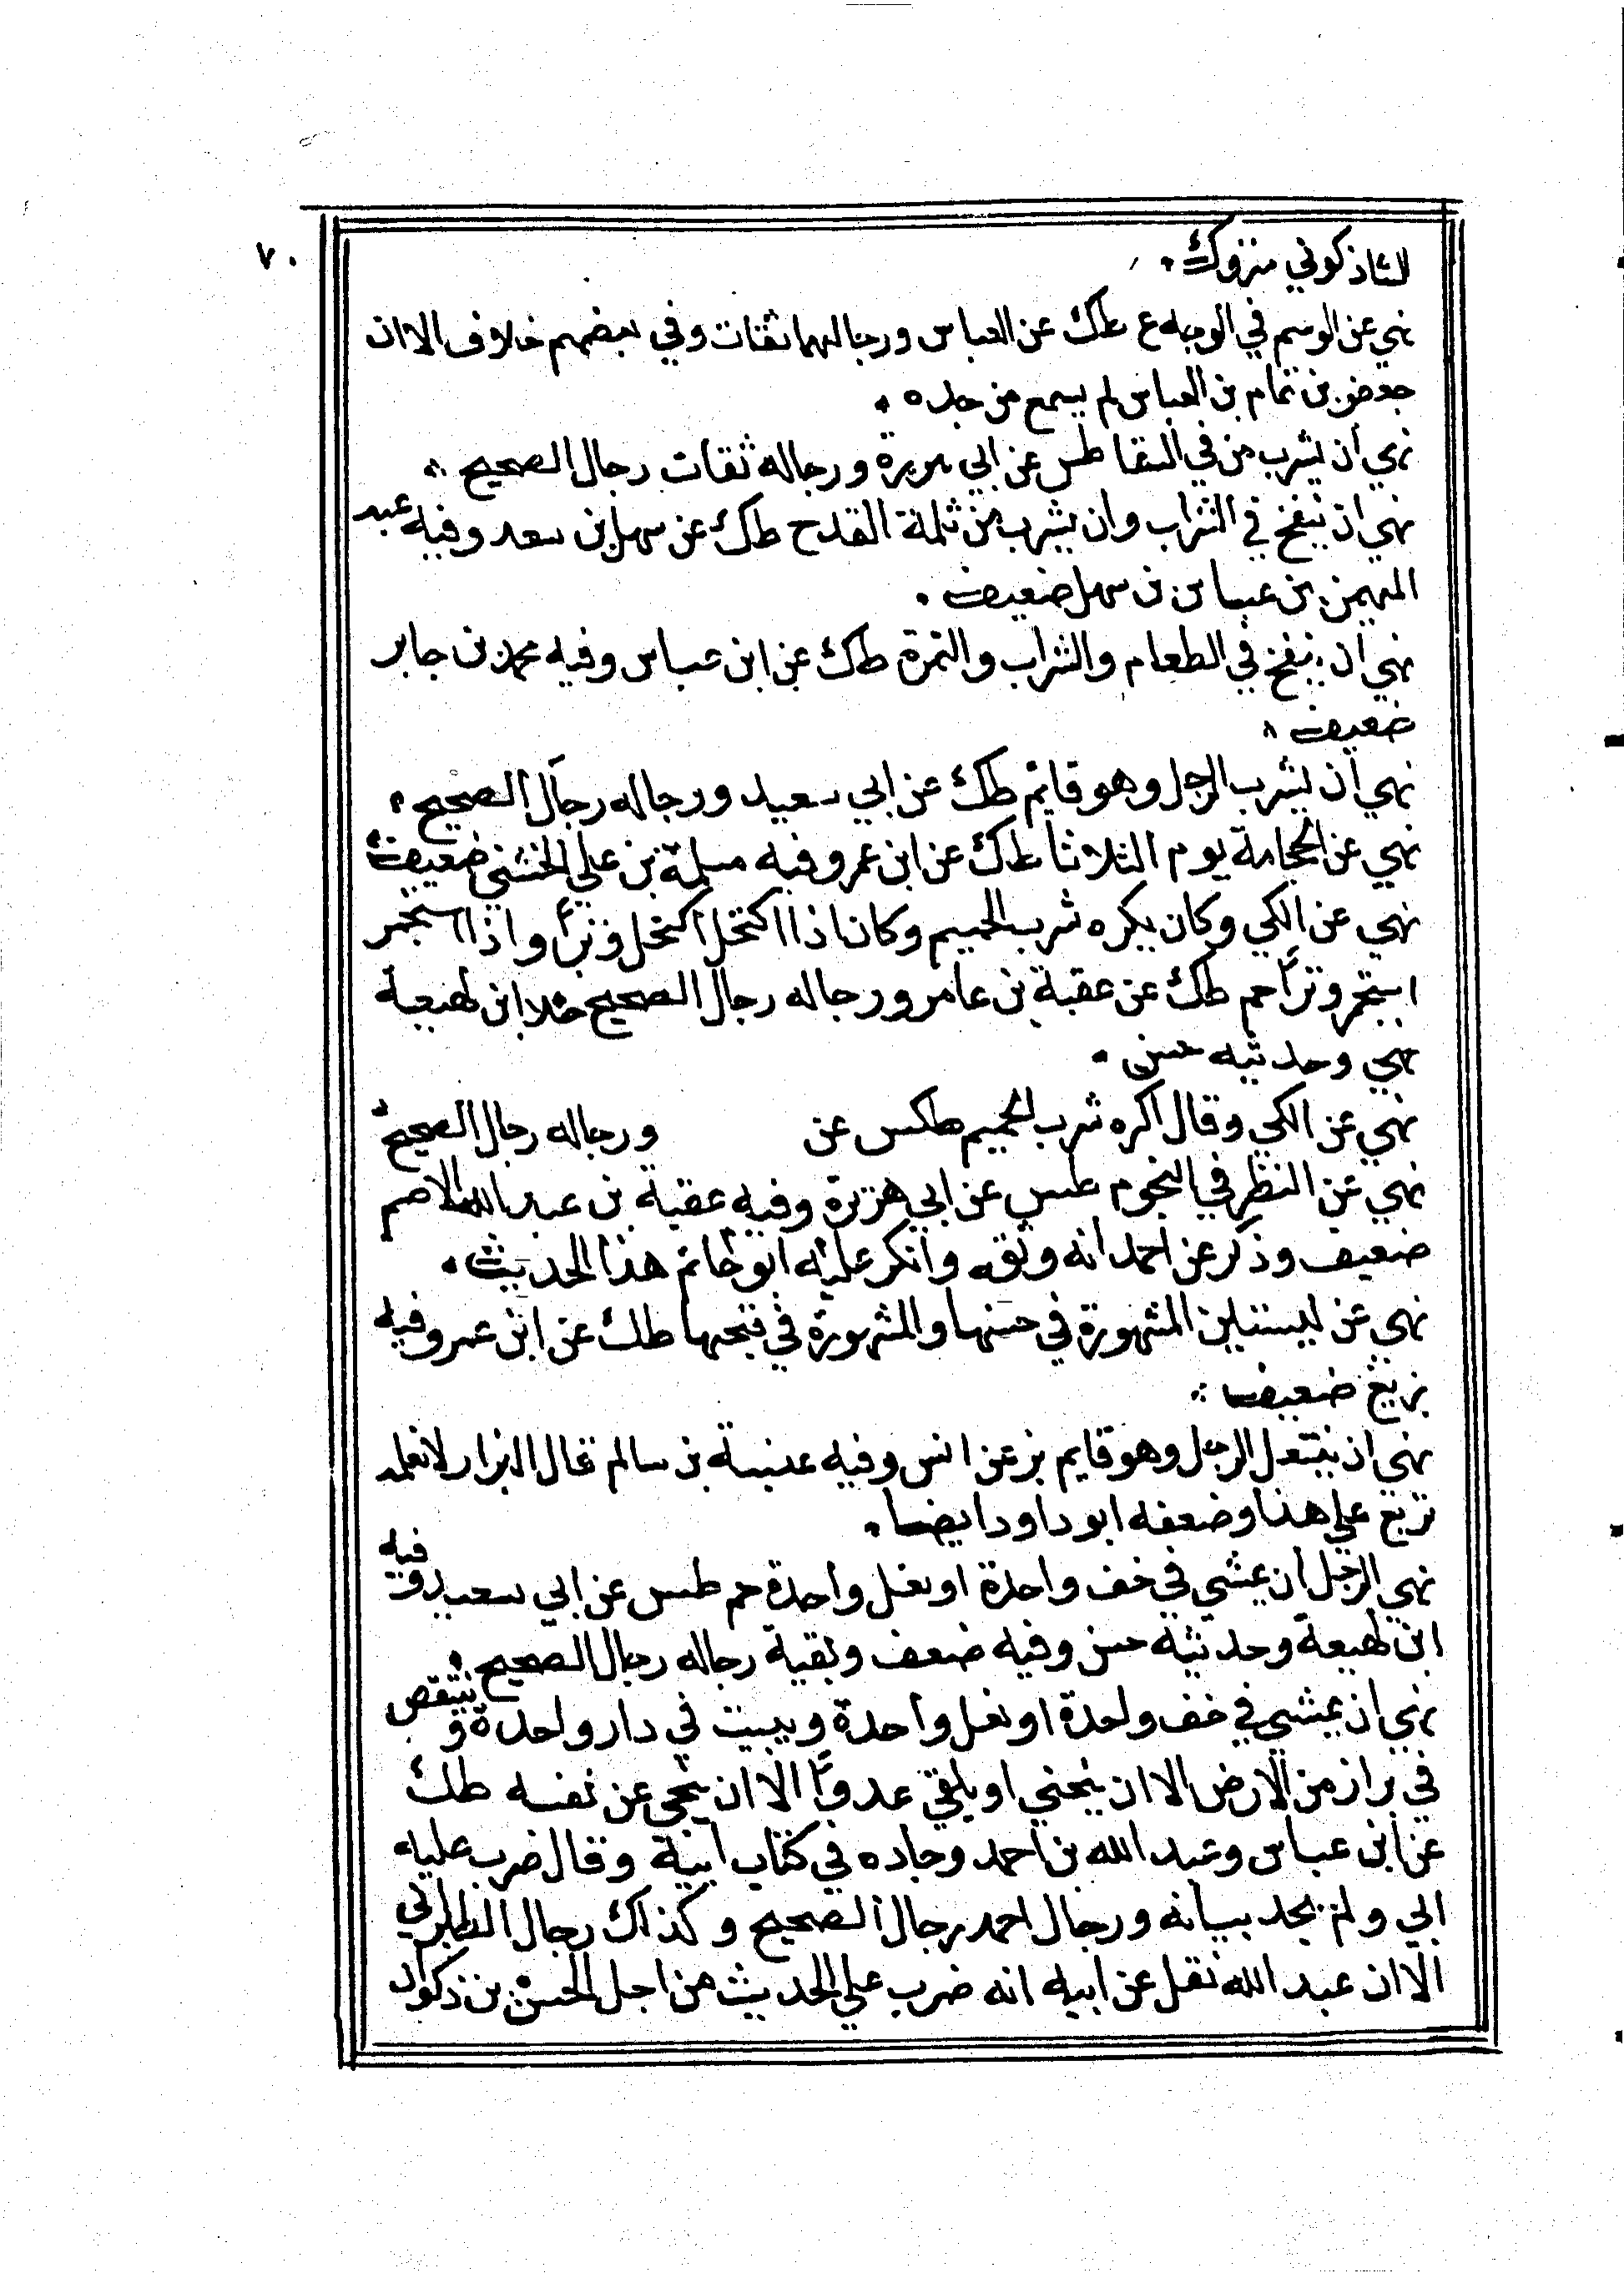 ٧٠
الشاذكوني متروك.
نهي عن الوسم في الوجه ع طك عن العباس ورجالهما ثقات وفي بعضهم خلاف الا ان
جعفر بن تمام بن العباس لم يسمع من جده.
نهي ان يشرب من في السقا طس عن ابي هريرة ورجاله ثقات رجال الصحيح.
نهي ان ينفخ في الشراب وان يشرب من ثلمة القدح طك عن سهل بن سعد وفيه عبد
المهيمن بن عباس بن سهل ضعيف.
نهي ان ينفخ في الطعام والشراب والتمرة طك عن ابن عباس وفيه محمد بن جابر
ضعيف.
نهي ان يشرب الرجل وهو قايم طك عن ابي سعيد ورجاله رجال الصحيح.
نهي عن الحجامة يوم الثلاثا طك عن ابن عمر وفيه مسلمة بن علي الخشني ضعيف
نهي عن الكي وكان يكره شرب الحميم وكان اذا اكتحل اكتحل وترًا واذا استجمر
استجمر وترًا حم طك عن عقبة بن عامر ورجاله رجال الصحيح خلا ابن لهيعة
نهي وحديثه حسن.
نهي عن الكي وقال اكره شرب الحميم طكس عن ورجاله رجال الصحيح
نهي عن النظر في النجوم طس عن ابي هريرة وفيه عقبة بن عبد الله الاصم
ضعيف وذكر عن احمد انه وثقه وانكر عليه ابو حاتم هذا الحديث.
نهي عن لبستين المشهورة في حسنها والمشهورة في قبحها طك عن ابن عمر وفيه
بزيغ ضعيف.
نهي ان ينتعل الرجل وهو قايم بز عن انس وفيه عنبسة بن سالم قال البزار لا نعلمه
توبع علي هذا وضعفه ابو داود ايضا.
نهي الرجل ان يمشي في خف واحدة او نعل واحدة حم طس عن ابي سعيد وفيه
ابن لهيعة وحديثه حسن وفيه ضعف وبقية رجاله رجال الصحيح.
نهي ان يمشي في خف واحدة او نعل واحدة ويبيت في دار واحدة و ينتقص
في براز من الارض الا ان ينحني او يلقي عدوًا الا ان ينجي عن نفسه طك
عن ابن عباس وعبد الله بن احمد وجاده في كتاب ابيه وقال ضرب عليه
ابي ولم يحد بيانه ورجال احمد رجال الصحيح وكذاك رجال الطبراني
الا ان عبد الله نقل عن ابيه انه ضرب علي الحديث من اجل الحسن بن ذكوان